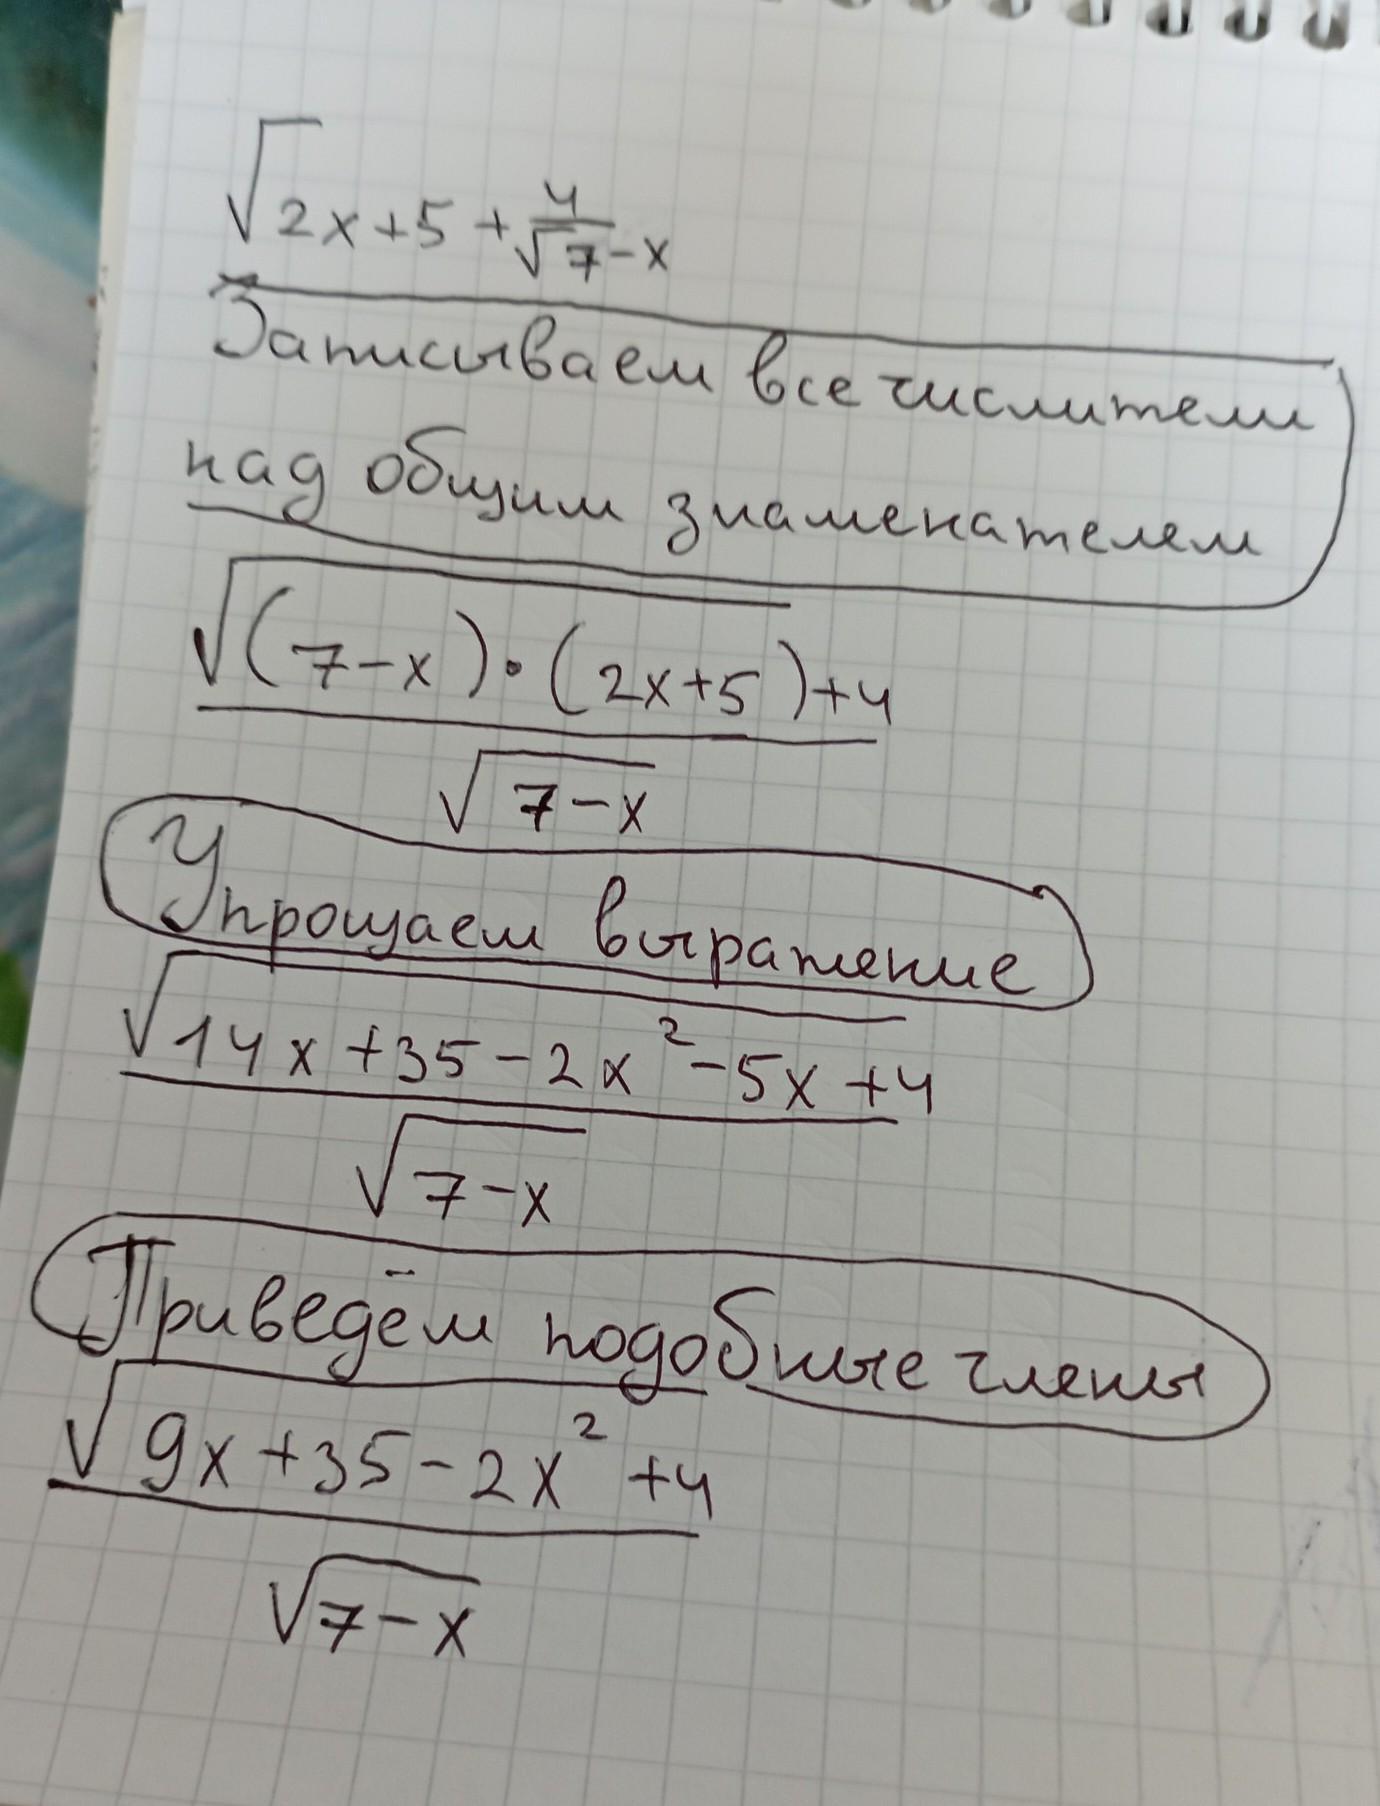 √2x+5+4/√7-x
Записываем все числители
над общим знаменателем
√(7-x)·(2x+5)+4
√7-x
Упрощаем выражение
√14x+35-2x²-5x+4
√7-x
Приведём подобные члены
√9x+35-2x²+4
√7-x